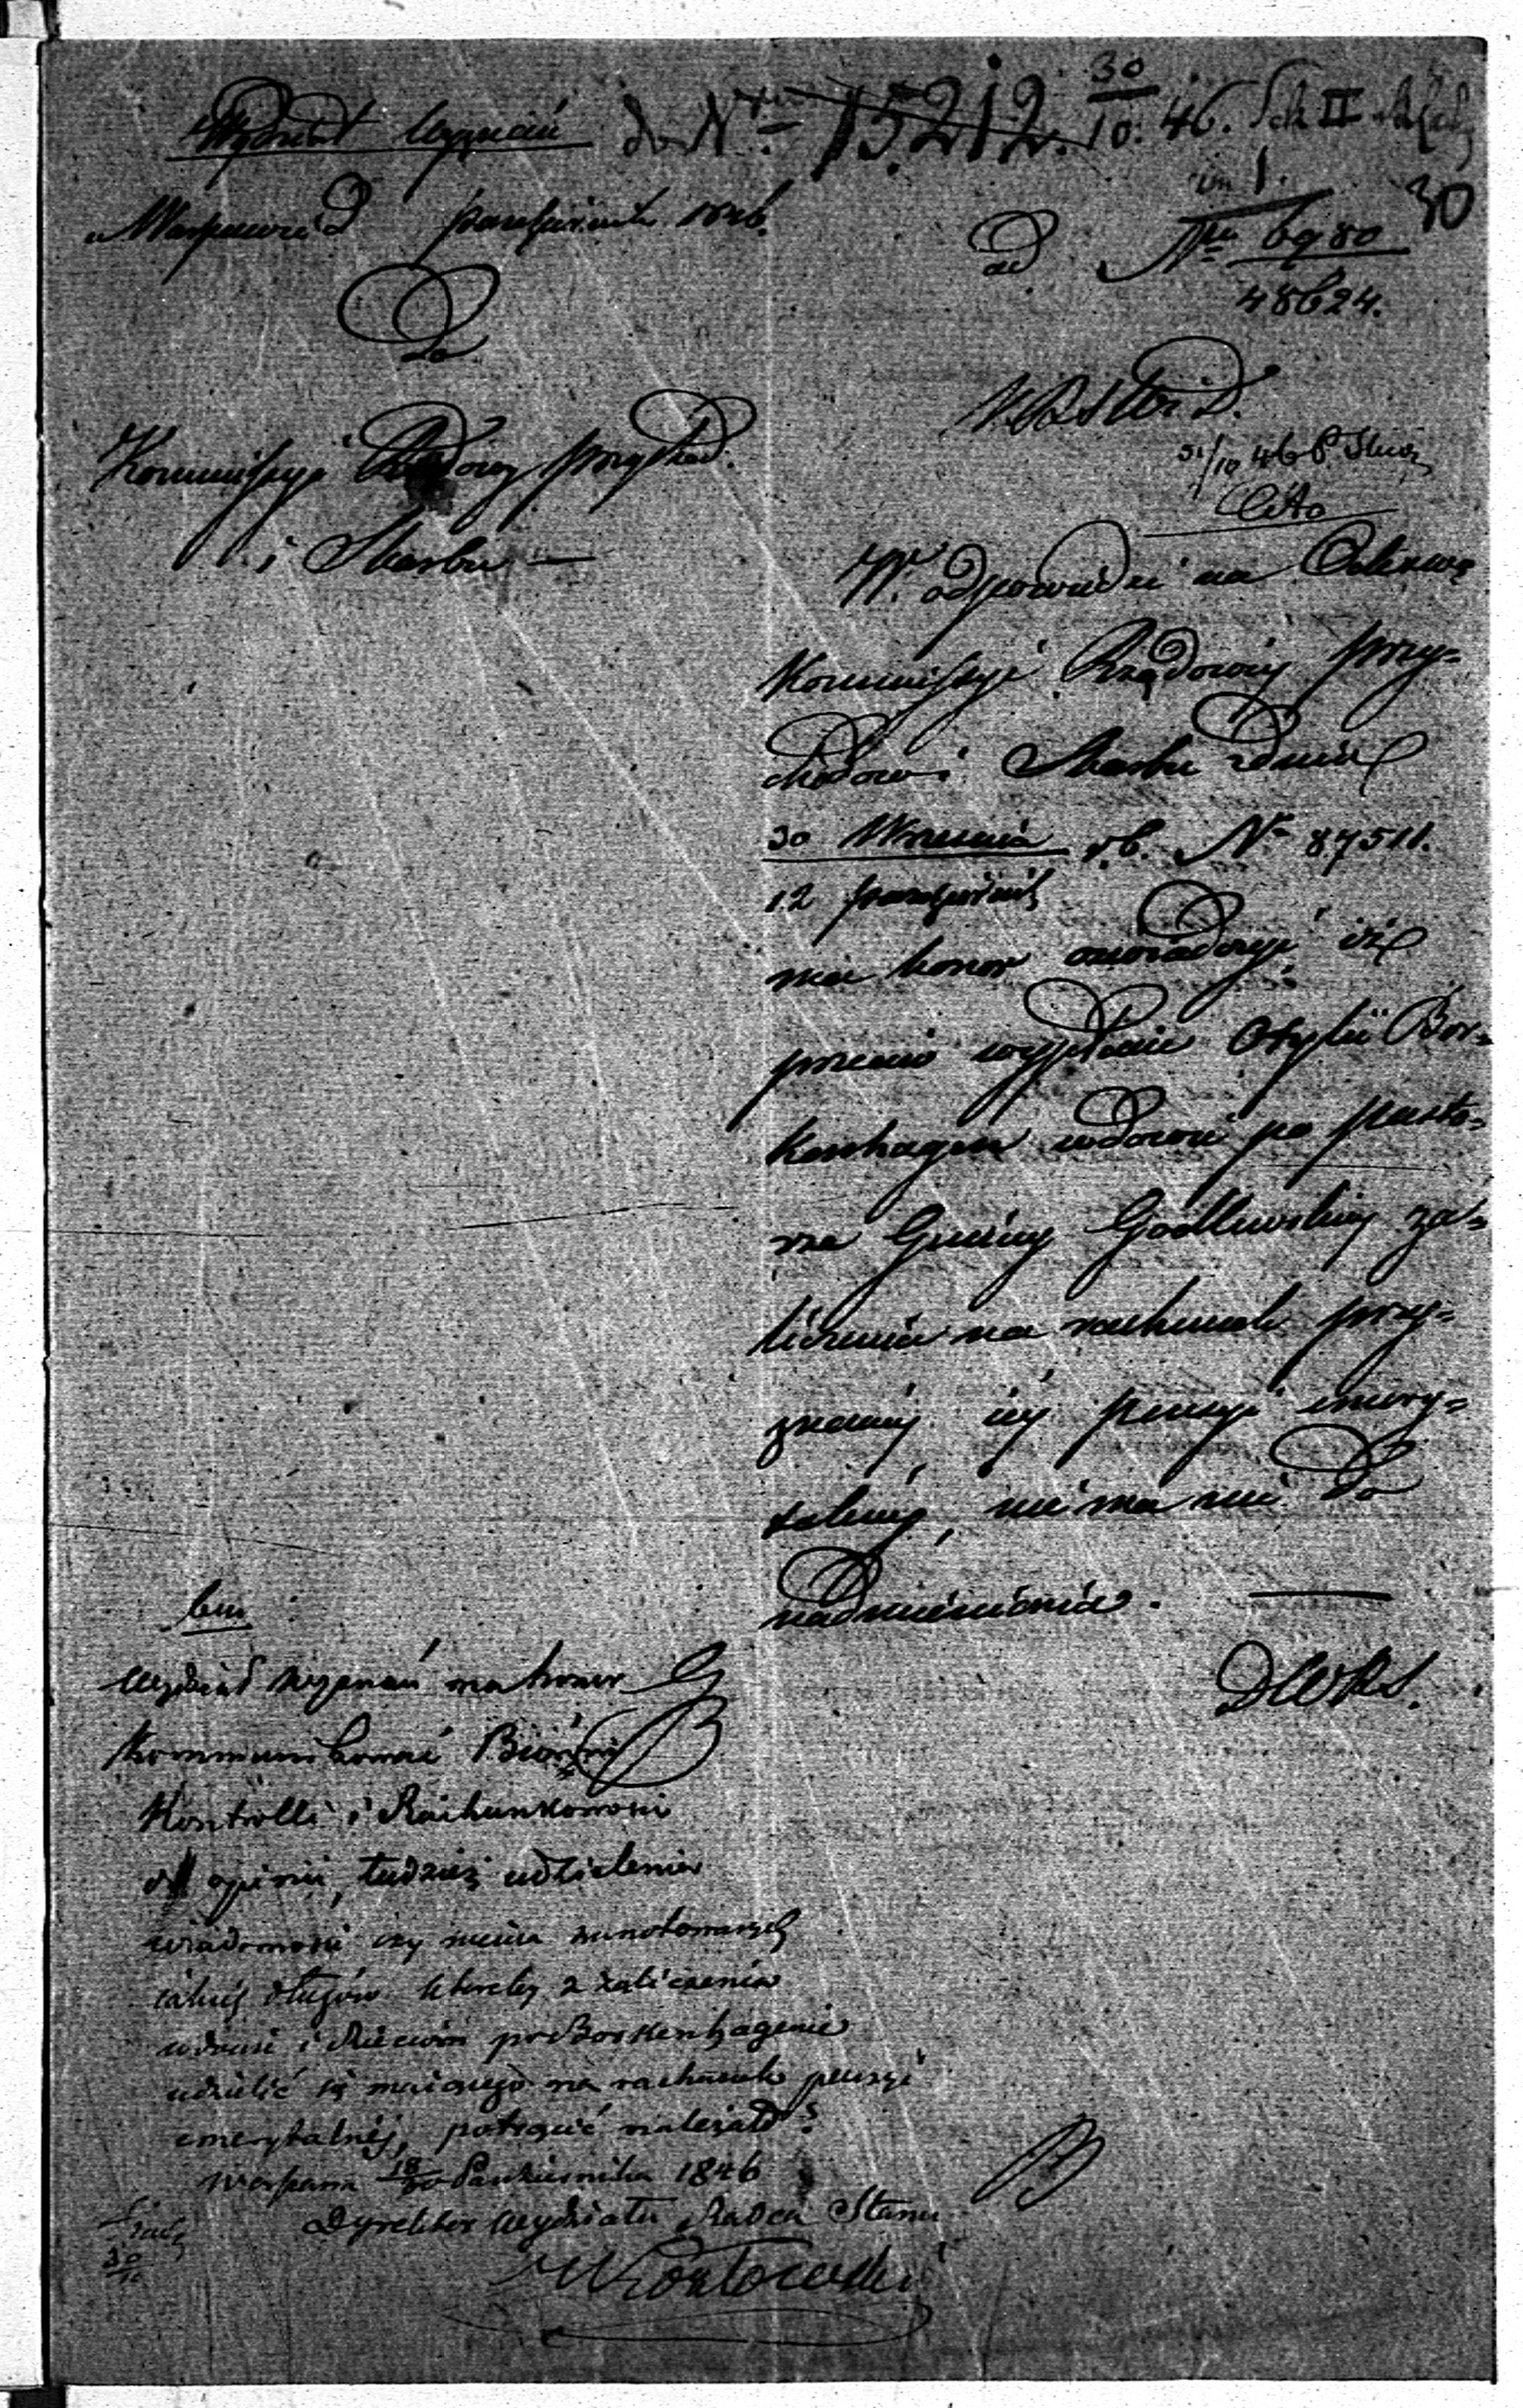 Wydział Wyznań do Nru 15212. 30/10. 46.
Warszawa d Października 1846.
30
ad Nru 6980
48624.
Do
Kommissyi Rządowéy Przychod.
i Skarbu —
Cito
W odpowiedzi na Odezwę
Kommissyi Rządowéy Przy=
chodów i Skarbu z dnia
30 Września r. b. Nr 87511.
12 Paźdźiernik
ma honor oświadczyć iż
przeciw wypłacie Otylii Bor=
kenhagen wdowie po Pasto=
rze Gminy Godlewskiéy za=
liczenia na rachunek przy=
znanéy iéy pensyi emery=
talnéy, nie ma nic do
nadmienienia.
Wydział Wyznań ma honor
kommunikować Biórowi
Kontrolli i Rachunkowości
do opinii, tudzież udzielenia
wiadomości czy niema zanotowanych
iakich długów któreby z zaliczenia
wdowie i dzieciom po Borkenhagenie
udzielić się maiącego na rachunek pensyi
emerytalnéj, potrącić należało?
Warszawa 18/30 Października 1846
Dyrektor Wydziału Radca Stanu